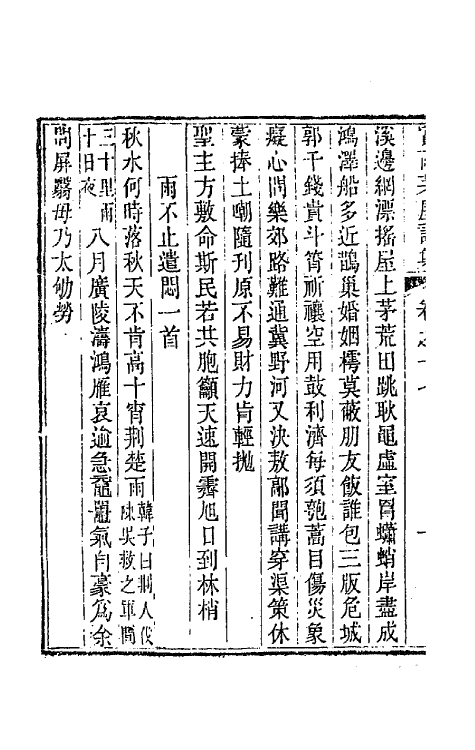 溪邊網漂搖屋上茅荒田跳耿黽虛室罥蠨蛸岸盡成
鴻澤船多近鵲巢婚姻樗莫蔽朋友飯誰包三版危城
郭千錢貴斗筲祈禳空用鼓利濟每須匏蒿目傷災象
癡心問樂郊路難通冀野河又決敖鄗聞講穿渠策休
蒙捧土嘲隨刊原不易財力肯輕拋
聖主方敷命斯民若共胞籲天速開霽旭日到林梢
雨不止遣悶一首
秋水何時落秋天不肯高十宵荆楚雨韓子曰荆人伐陳吳救之軍間
三十里雨十日夜八月廣陵濤鴻雁哀逾急黿鼉氣自豪爲余
問屏翳毋乃太劬勞